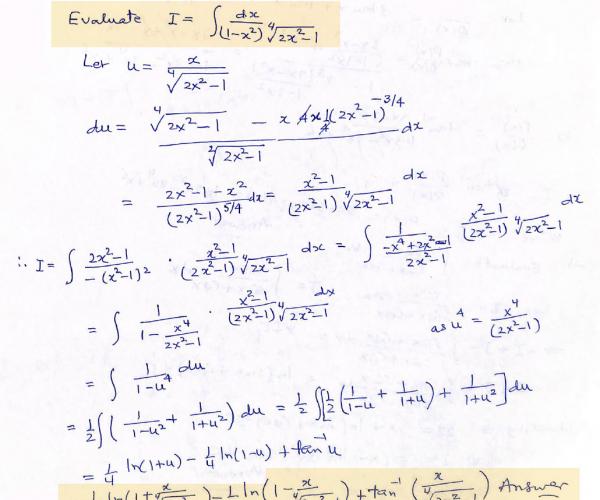 Evaluate I = ∫ dx / ((1-x²) ∜(2x²-1))
Let u = x / ∜(2x²-1)
du = (∜(2x²-1) - x 4x ¼ (2x²-1)^(-3/4)) / ²√(2x²-1) dx
= (2x²-1-x²) / (2x²-1)^(5/4) dx = (x²-1) / ((2x²-1) ∜(2x²-1)) dx
∴ I = ∫ (2x²-1) / (-(x²-1)²) · (x²-1) / ((2x²-1) ∜(2x²-1)) dx = ∫ 1 / ((-x⁴+2x²-1) / (2x²-1)) (x²-1) / ((2x²-1) ∜(2x²-1)) dx
= ∫ 1 / (1 - x⁴/(2x²-1)) · (x²-1) / ((2x²-1) ∜(2x²-1)) dx as u⁴ = x⁴ / (2x²-1)
= ∫ 1/(1-u⁴) du
= ½ ∫ (1/(1-u²) + 1/(1+u²)) du = ½ ∫ [½ (1/(1-u) + 1/(1+u)) + 1/(1+u²)] du
= ¼ ln(1+u) - ¼ ln(1-u) + tan⁻¹ u
ln(1 + x/∜(2x²-1)) - ¼ ln(1 - x/∜(2x²-1)) + tan⁻¹ (x/∜(2x²-1)) Answer